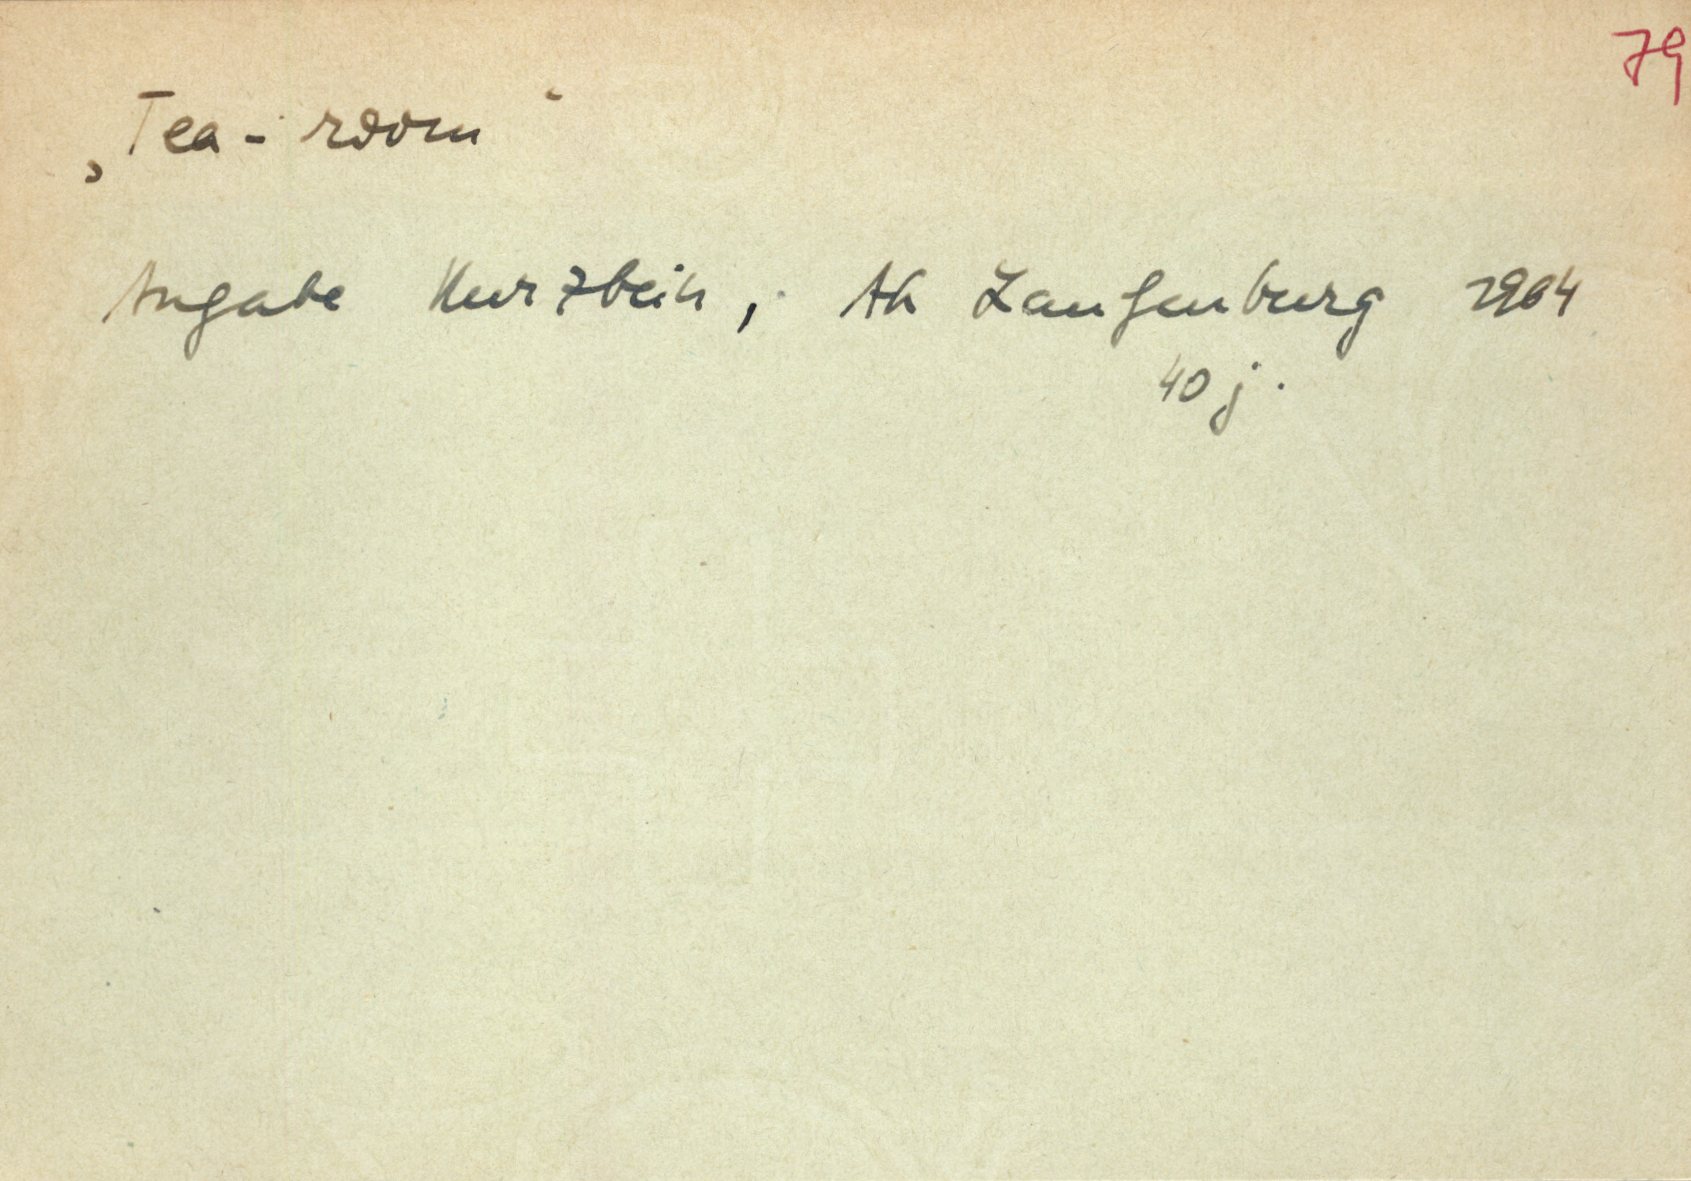 79
‚Tea-room‘
Angabe Kurzbein, AK Laufenburg 1964
40j.